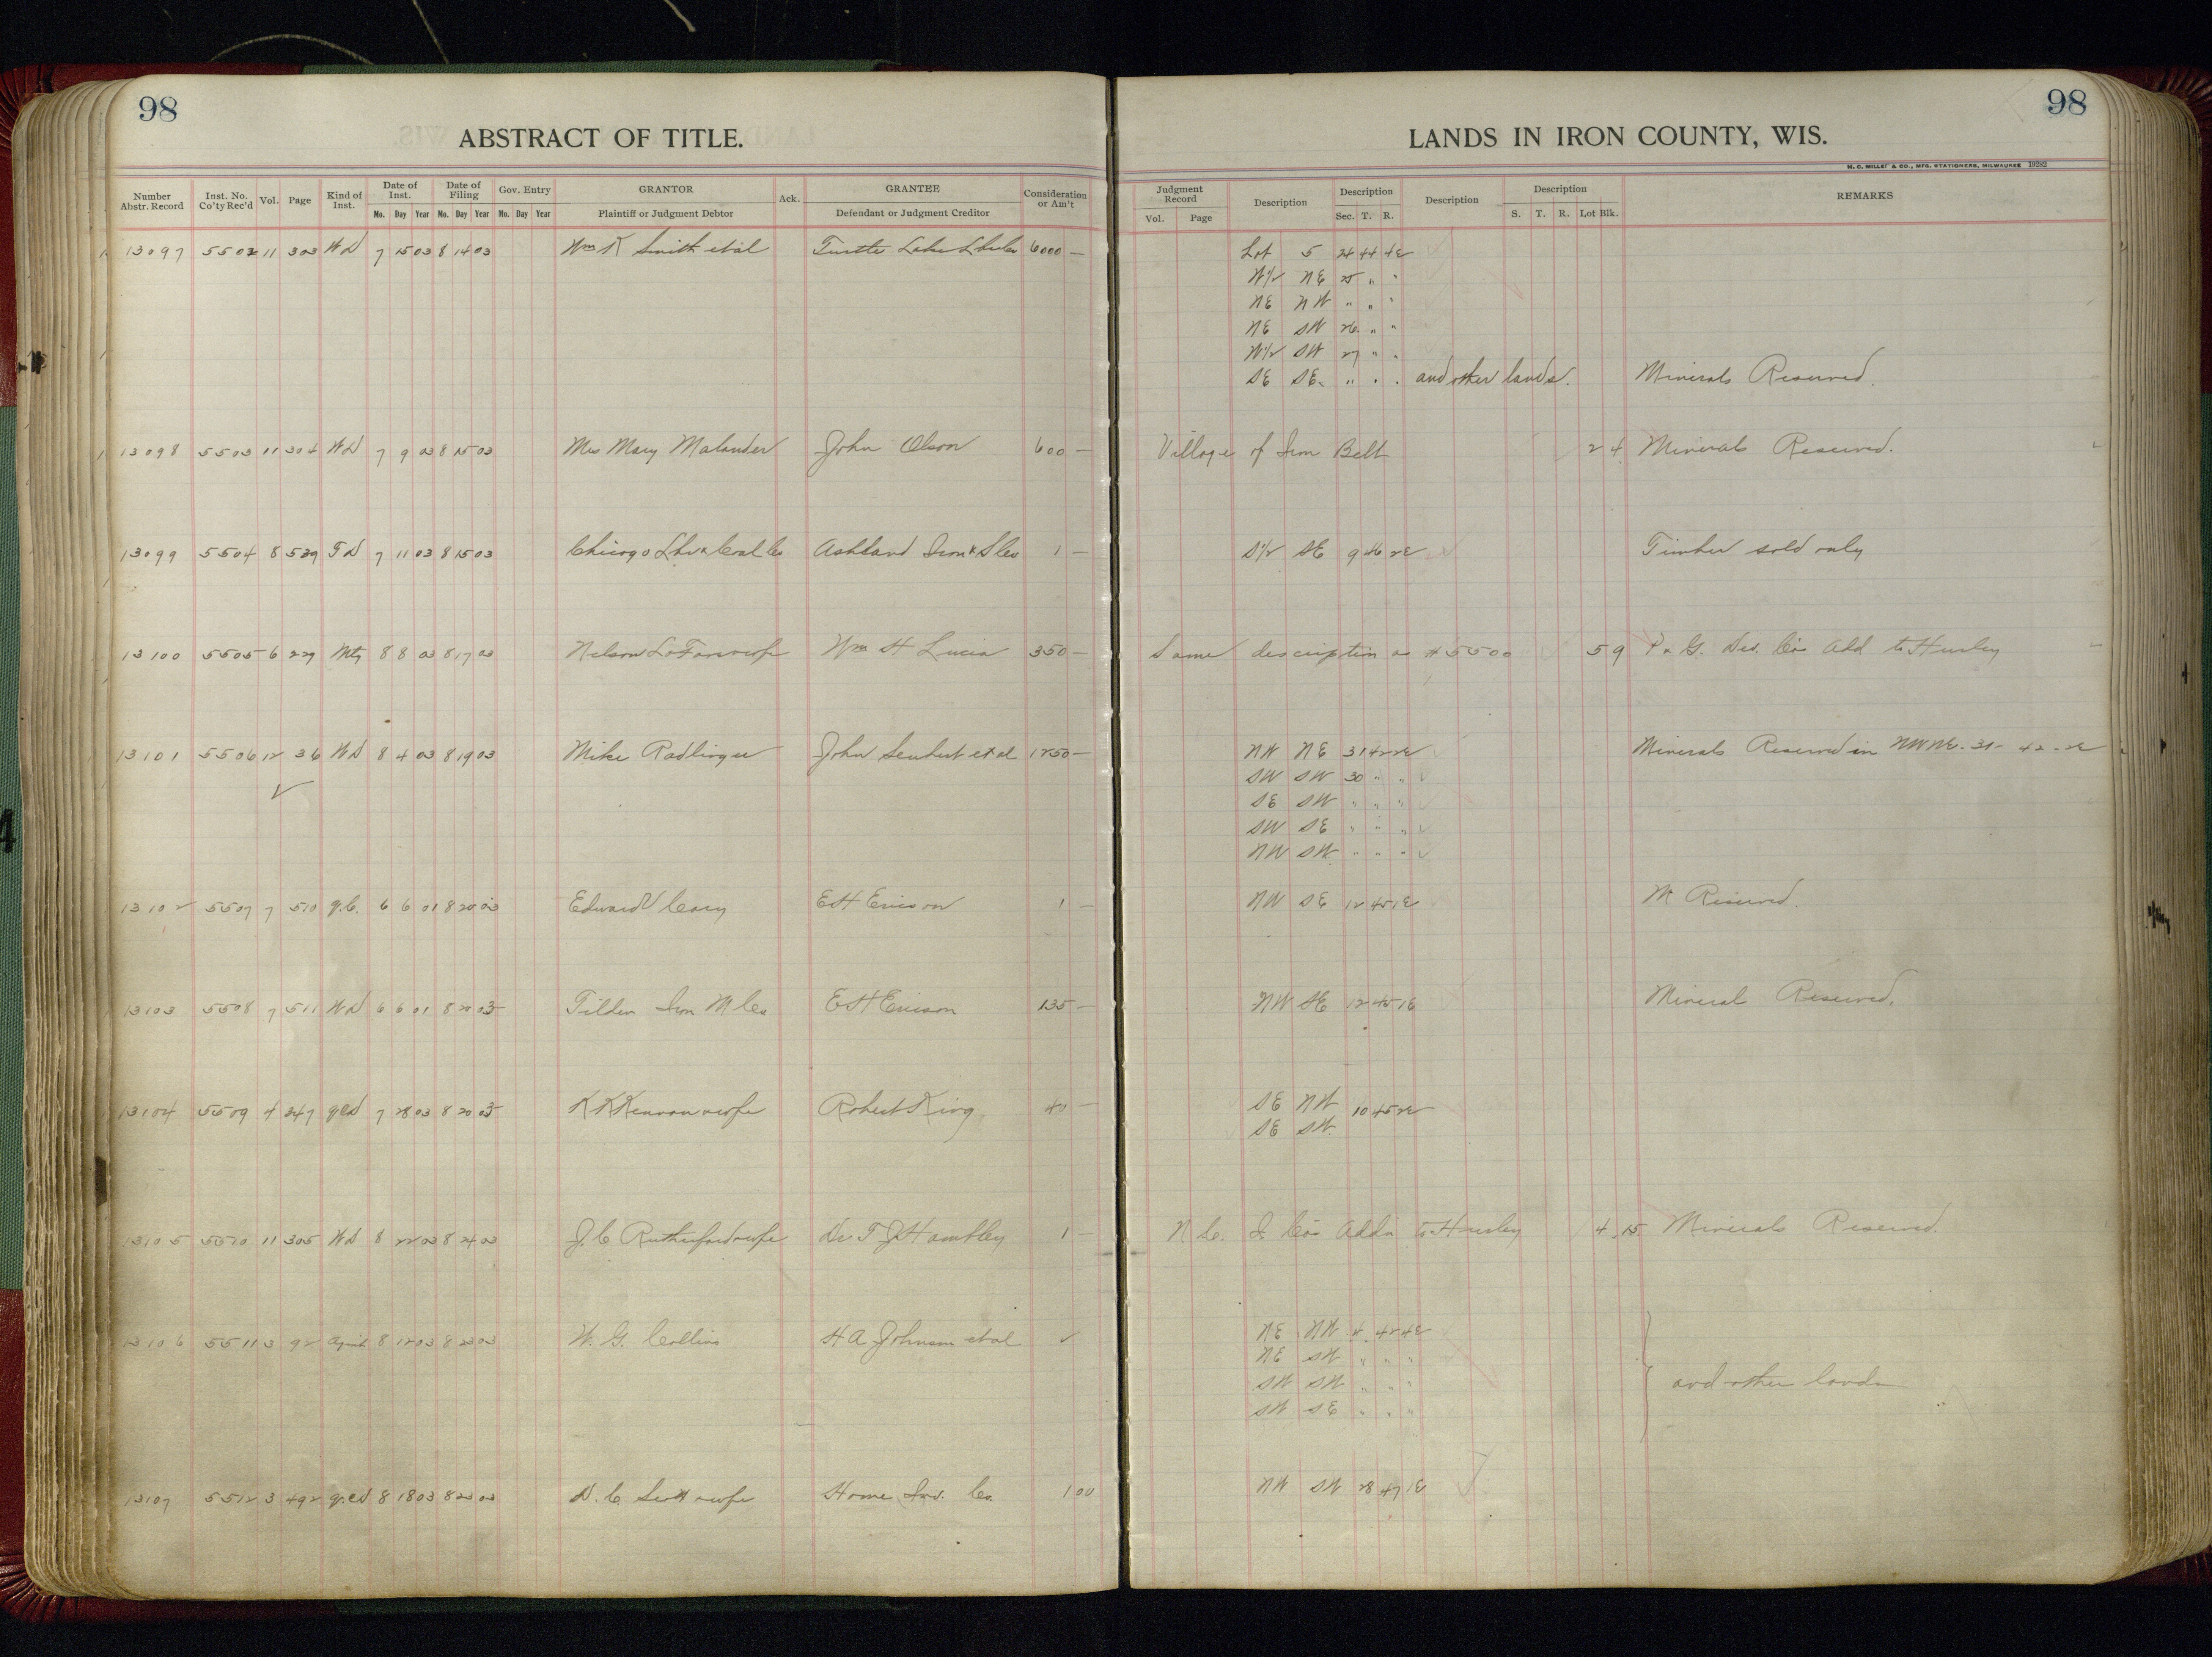 98
ABSTRACT OF TITLE.
Number Abstr. Record Inst. No. Co'ty Rec'd Vol. Page Kind of Inst. Date of Inst. Mo. Day Year Date of Filing Mo. Day Year Gov. Entry Mo. Day Year GRANTOR Plaintiff or Judgment Debtor Ack. GRANTEE Defendant or Judgment Creditor Consideration or Am't
13097 5502 11 303 WD 7 15 03 8 14 03 Wm K Smith et al Turtle Lake Lbr Co 6000 —
13098 5503 11 304 WD 7 9 03 8 15 03 Mrs Mary Malander John Olson 600 —
13099 5504 8 539 TD 7 11 03 8 15 03 Chicago Lbr & Coal Co Ashland Iron & S Co 1 —
13100 5505 6 229 Mtg 8 8 03 8 17 03 Nelson Wm H Lucia 350 —
13101 5506 12 36 WD 8 4 03 8 19 03 Mike Radlinger John et al 1250 —
13102 5507 7 510 q.C. 6 6 01 8 20 03 Edward V Cary EH Ericson 1 —
13103 5508 7 511 WD 6 6 01 8 20 03 Tilden Iron M Co EH Ericson 135 —
13104 5509 4 347 qCD 7 28 03 8 20 03 KK Kennan & wife Robert King 40 —
13105 5510 11 305 WD 8 22 03 8 24 03 J.C Rutherford & wife Dr T J Hambley 1 —
13106 5511 3 92 Agmt 8 12 03 8 23 03 W. G. Collins H A Johnson et al ✓
13107 5512 3 492 q.CD 8 18 03 8 23 03 D. C. Scott & wife Home Inv. Co. 100
98
LANDS IN IRON COUNTY, WIS.
H. C. MILLER & CO., MFG. STATIONERS, MILWAUKEE 19282
Judgment Record Vol. Page Description Description Sec. T. R. Description Description S. T. R. Lot Blk. REMARKS
Lot 5 24 44 4E
W1/2 NE 25 " "
NE NW " " "
NE SW 26 " "
W1/2 SW 27 " "
SE SE " " " and other lands. Minerals Reserved.
Village of Iron Belt 2 4 Minerals Reserved.
S1/2 SE 9 46 2E Timber sold only
Same description as #5500 5 9 P & G. Dev. Co's Add to Hurley
NW NE 31 42 2E Minerals Reserved in NWNE-31-42-2E
SW SW 30 " "
SE SW " " "
SW SE " " "
NW SW " " "
NW SE 12 45 1E M Reserved.
NW SE 12 45 1E Mineral Reserved.
SE NW 10 45 2E
SE SW
N L. I. Co's Addn to Hurley 4 15 Minerals Reserved.
NE NW 4 42 4E
NE SW " " "
SW SW " " " and other lands
SW SE " " "
NW SW 28 47 1E